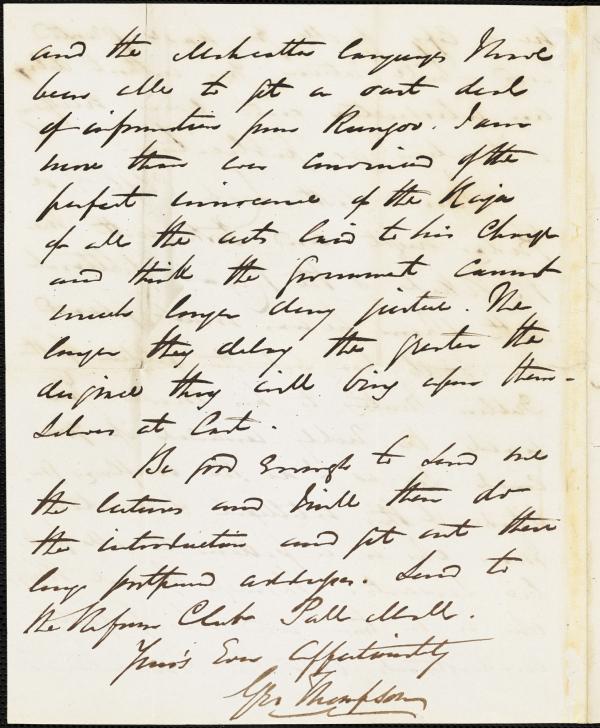 and the Mahratta language I have
been able to get a vast deal
of information from Rungoo. I am
more than ever convinced of the
perfect innocence of the Raja
of all the acts laid to his charge
and think the Government cannot
much longer deny justice. The
longer they delay the greater the
disgrace they will bring upon them-
selves at last.
Be good enough to send me
the lectures and I will then do
the introduction and get out these
long postponed addresses. Send to
the Reform Club Pall Mall.
Your's Ever Affectionately
Geo Thompson